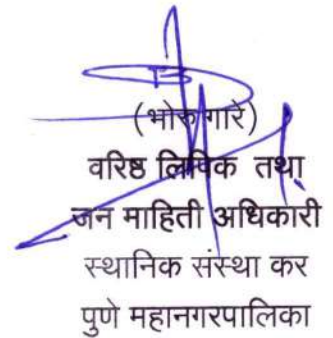 (भोरू गारे)
वरिष्ठ लिपिक तथा
जन माहिती अधिकारी
स्थानिक संस्था कर
पुणे महानगरपालिका